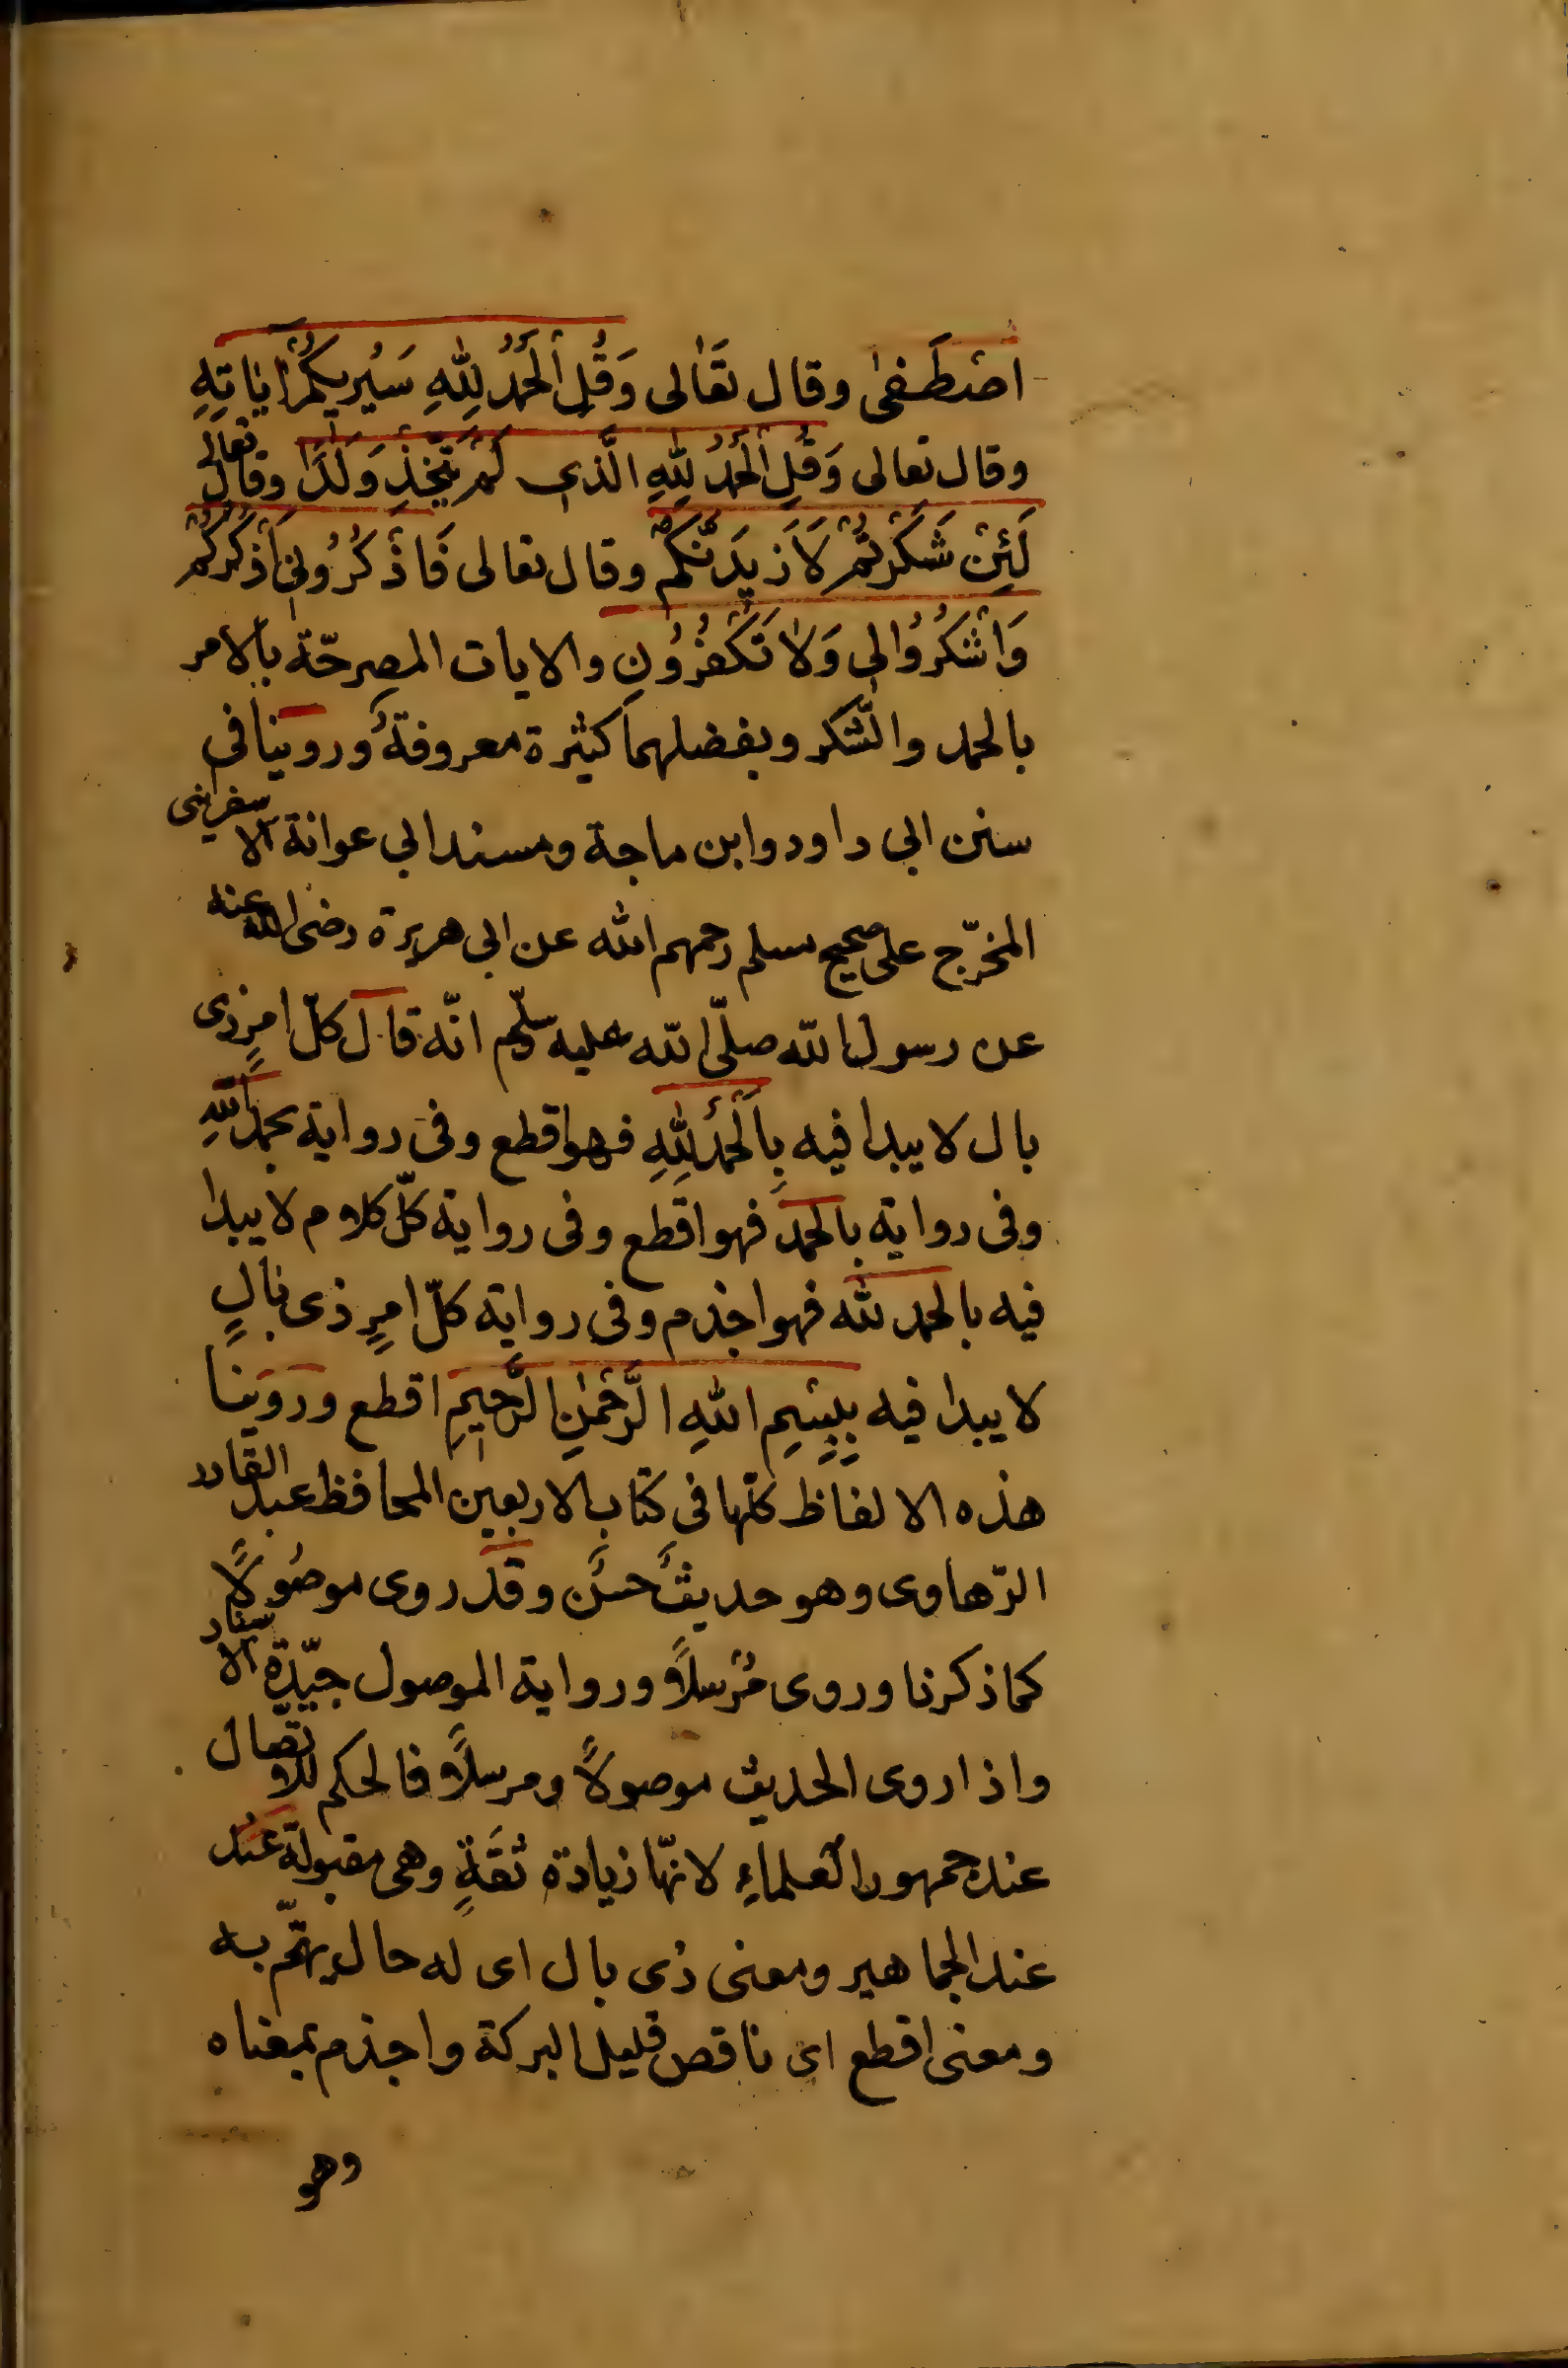 اصْطَفىٰ وقال تَعَالى وَقُلِ الْحَمْدُ لِلّٰهِ سَيُرِيكُمْ اٰيَاتِهِ
وقال تعالى وَقُلِ الْحَمْدُ لِلّٰهِ الَّذِى لَمْ يَتَّخِذْ وَلَدًا وقال تعالى
لَئِنْ شَكَرْتُمْ لَاَزِيدَنَّكُمْ وقال تعالى فَاذْكُرُونِى اَذْكُرْكُمْ
وَاشْكُرُوْالِى وَلَا تَكْفُرُونِ والايات المصرحّة بالامر
بالحمد والشّكر وبفضلهما كثيرة معروفةٌ وروينا فى
سنن ابي داود وابن ماجة ومسند ابي عوانة الاسفراينى
المخرّج على صحيح مسلم رحمهم الله عن ابي هريرة رضى الله عنه
عن رسول الله صلّى الله عليه وسلّم انّه قال كلّ امرٍ ذى
بال لا يبدا فيه بِالْحَمْدُ لِلّٰهِ فهو اقطع وفى رواية بحمد اللّٰهِ
وفى رواية بالحمد فهو اقطع وفى رواية كلّ كلام لا يبدا
فيه بالحمد لله فهو اجذم وفى رواية كلّ امرٍ ذى بالٍ
لا يبدا فيه بِبِسْمِ اللّٰهِ الرَّحْمٰنِ الرَّحِيمِ اقطع وروَينا
هذه الالفاظ كلّها فى كتاب الاربعين للحافظ عبد القادر
الرّهاوى وهو حديثٌ حسنٌ وقد روى موصُولًا
كما ذكرنا وروى مُرْسلًا ورواية الموصول جيّدة الاسناد
واذا روى الحديث موصولًا ومرسلًا فالحكم للاتّصال
عند جمهور العلماءِ لانّها زيادة ثقةٍ وهى مقبولة عند
عند الجماهير ومعنى ذى بال اى له حال يهتمّ به
ومعنى اقطع اى ناقص قليل البركة واجذم بمعناه
وهو